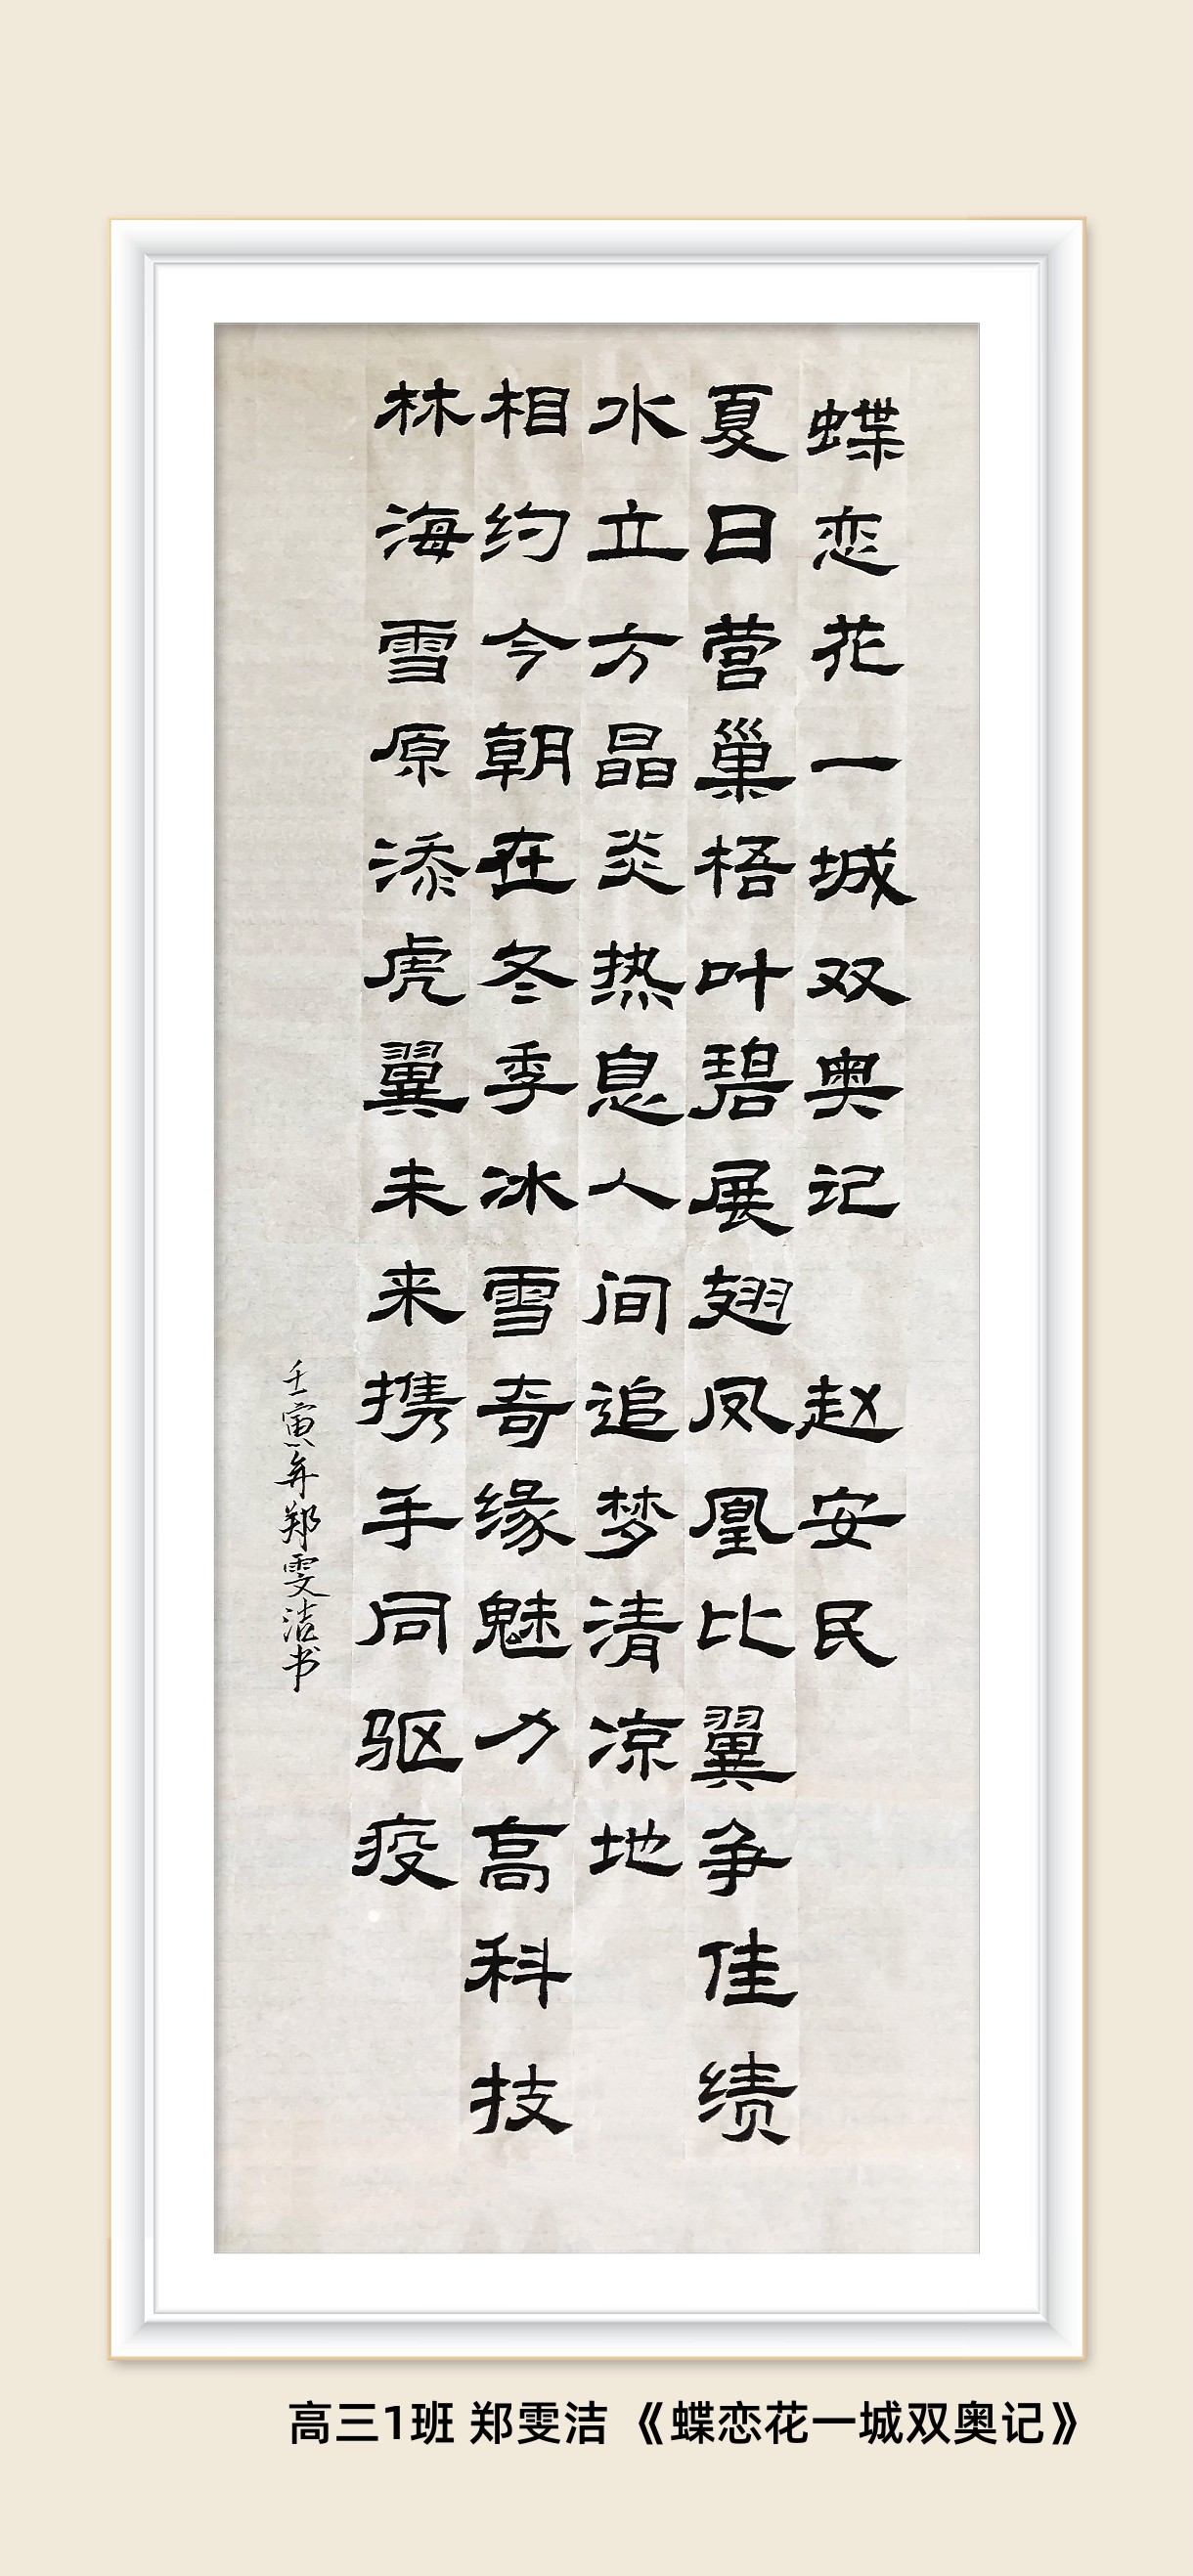 蝶恋花一城双奥记 赵安民
夏日营巢梧叶碧展翅凤凰比翼争佳绩
水立方晶炎热息人间追梦清凉地
相约今朝在冬季冰雪奇缘魅力高科技
林海雪原添虎翼未来携手同驱疫
壬寅年郑雯洁书
高三1班 郑雯洁 《蝶恋花一城双奥记》